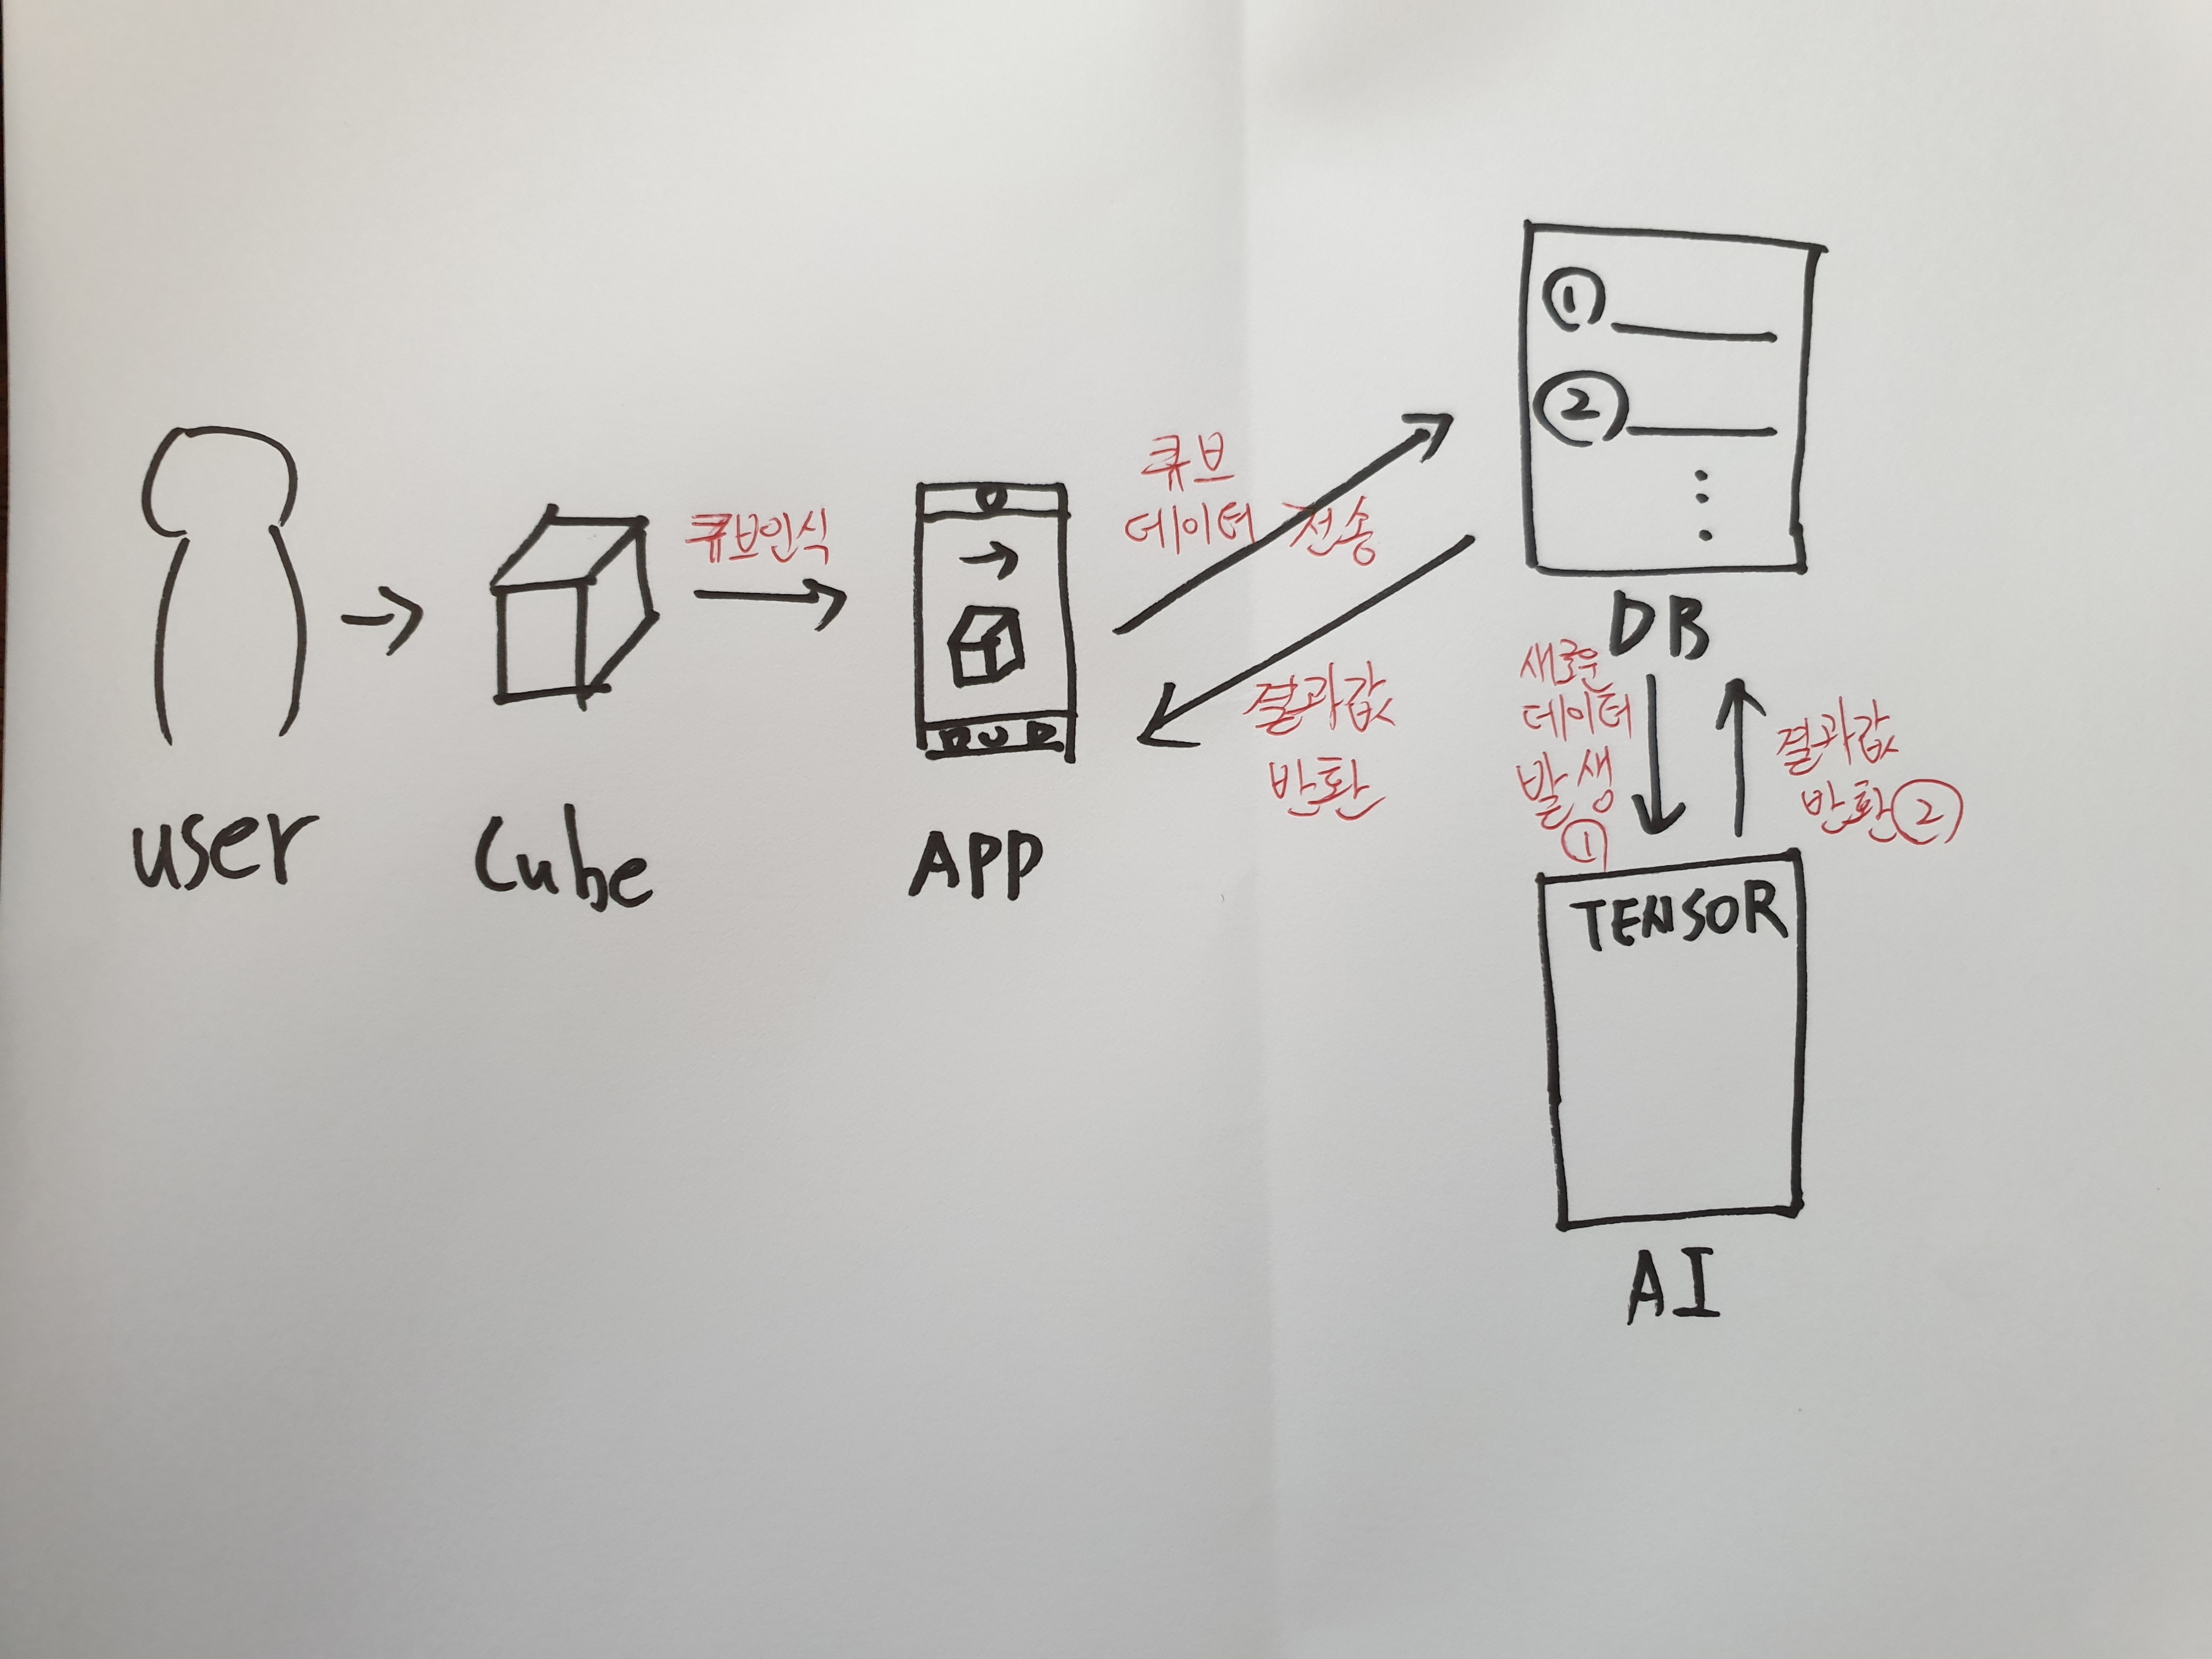 user
Cube
큐브인식
APP
큐브
데이터 전송
결과값
반환
①
②
DB
새로운
데이터
발생
①
결과값
반환②
TENSOR
AI